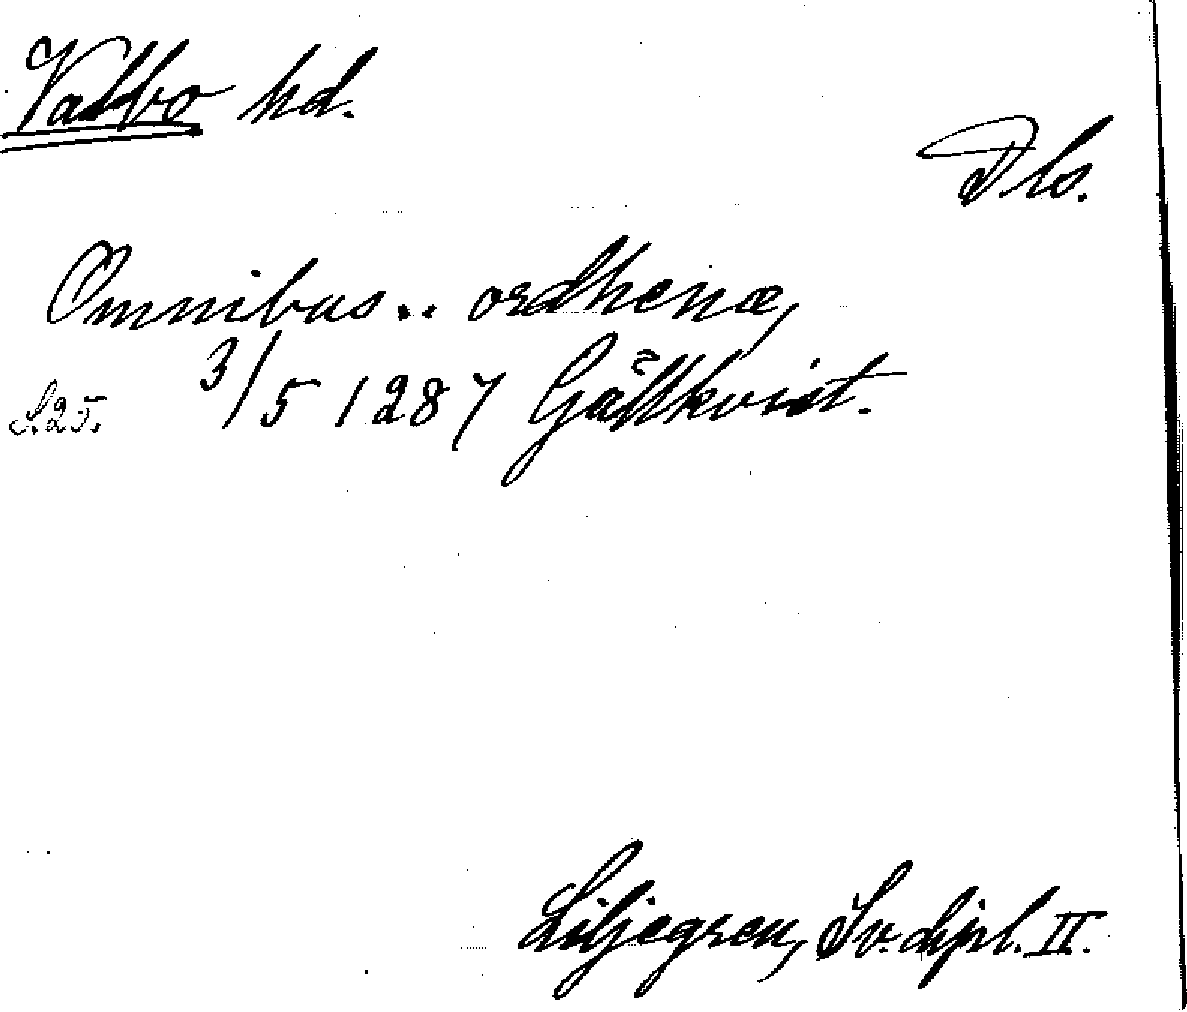 Valbo hd.
Dls.
Omnibus.. ordhenæ,
S. 25. 3/5 1287 Gätkvist.
Liljegren, Sv. dipl. II.